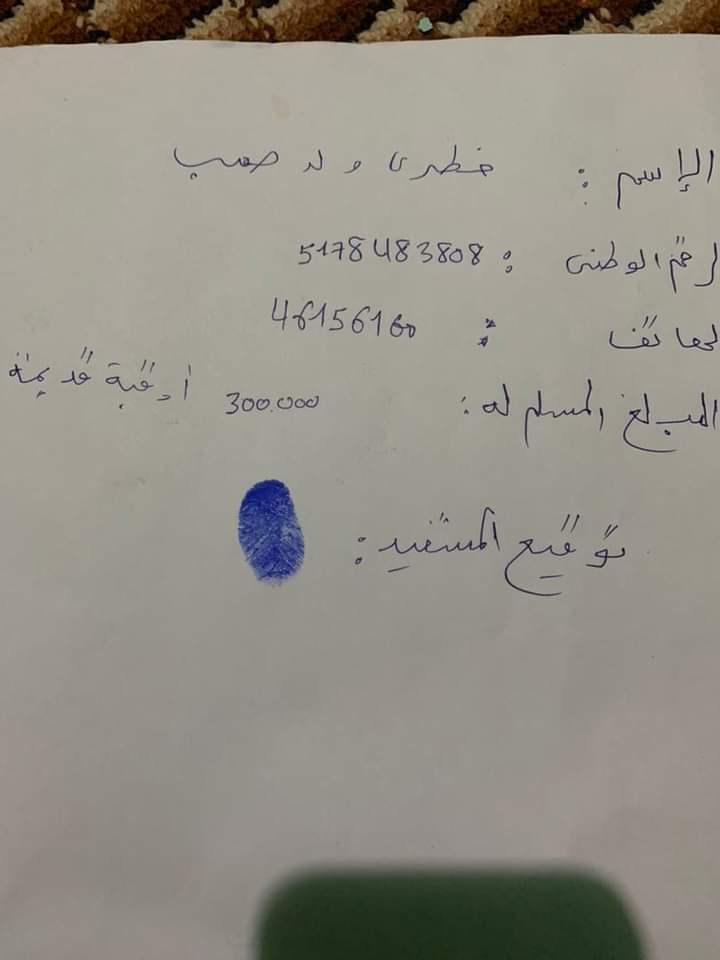 الإسم : خطرى ولد صمب
رقم الوطنى : 5178483808
لهاتف : 46156160
المبلغ المسلم له : 300.000 أوقية قديمة
توقيع المستفيد :